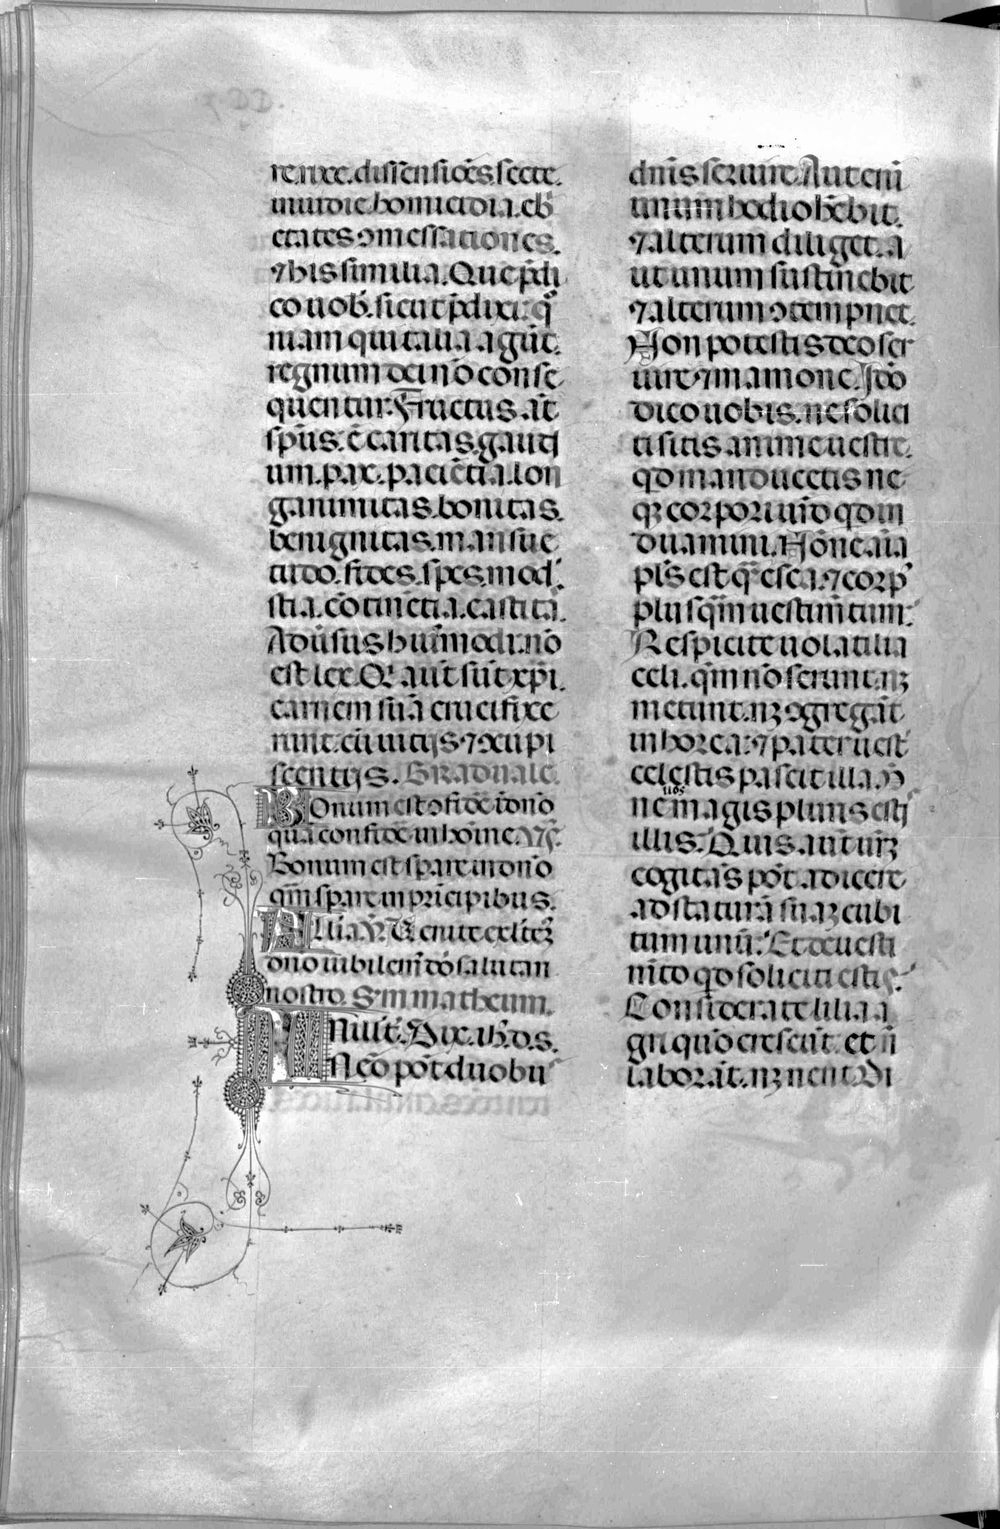 re. rixe. dissensiōes. secte.
inuidie. homicidia. eb̄
etates ꝯmessationes.
⁊ his similia. Que p̄di
co uob̄. sicut p̄dixi: qͦ
niam qui talia agūt.
regnum dei nō conse
quentur. Fructus. at̄
sp̄us. ē caritas. gaudi
um. pax. paciētia. lon
ganimitas. bonitas.
benignitas. mansue
tudo. fides. spes. mode
stia. cōtinētia. castitā.
Aduīsus huīmodi. nō
est lex. Qͥ aut̄ sūt xp̄i.
carnem suā crucifixe
runt. cū uitijs. ⁊ ꝯcupi
scentijs. Graduale.
Bonum est ꝯfidē ī dn̄o
quā confidē in hoīne. V̄s.
Bonum est sp̄are in dn̄o
qm̄ sp̄are in pri̅cipibus.
Allīa. V̄. Venite exultēꝫ
dn̄o iubilem̄ dō salutari
nostro. S̄m matheum.
In illt̄. Dix. ih̄c. d. s.
Nēo pōt duobus
dn̄is seruire. Aut eni̅
unum hodio hēbit.
⁊ alterum diliget. a
ut unum sustinebit
⁊ alterum ꝯtempnet.
Non potestis deo ser
uire ⁊ mamone. Idō
dico uobis. ne solici
ti sitis anime uestre.
qd manducetis ne
qꝫ corpori ur̄o qd in
duamini. Nōne aīa
pls̄ est qͣ esca. ⁊ corpꝰ
plusqͣm uestim̄tum:
Respicite uolatilia
celi. qm̄ nō serunt. nꝫ
metunt. nꝫ ꝯgregāt
in horea: ⁊ pater uest̄
celestis pascit illa. N̄
ne uos magis pluris estis
illis. Quis aut̄ ur̄ꝫ
cogitās pōt adicere
ad staturā suaꝫ cubi
tum unū. Et de uesti
mīto qd soliciti estis.
Considerate lilia a
gri quō crescūt. et n̄
laborāt. nꝫ nent. Di